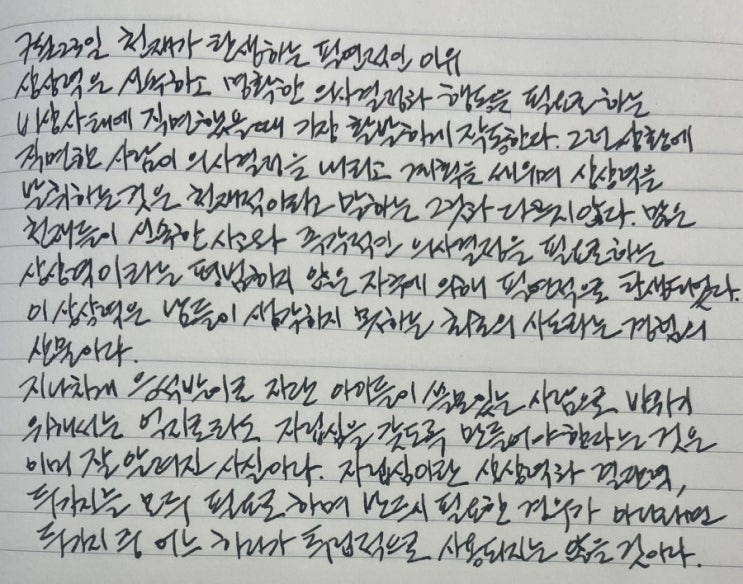 9월23일 천재가 탄생하는 필연적인 이유
상상력은 신속하고 명확한 의사결정과 행동을 필요로 하는
비상사태에 직면했을때 가장 활발하게 작동한다. 그런 상황에
직면한 사람이 의사결정을 내리고 계획을 세우며 상상력을
발휘하는 것은 천재적이라고 말하는 그것과 다르지 않다. 많은
천재들이 신속한 사고와 즉각적인 의사결정을 필요로하는
상상력이라는 평범하지 않은 자극에 의해 필연적으로 탄생되었다.
이 상상력은 남들이 생각하지 못하는 최고의 사고라는 경험의
산물이다.
지나치게 응석받이로 자란 아이들이 쓸모있는 사람으로 바뀌기
위해서는 억지로라도 자립심을 갖도록 만들어야한다는 것은
이미 잘 알려진 사실이다. 자립심이란 상상력과 결단력,
두가지를 모두 필요로 하며 반드시 필요한 경우가 아니라면
두가지 중 어느 하나가 독립적으로 사용되지는 않을 것이다.